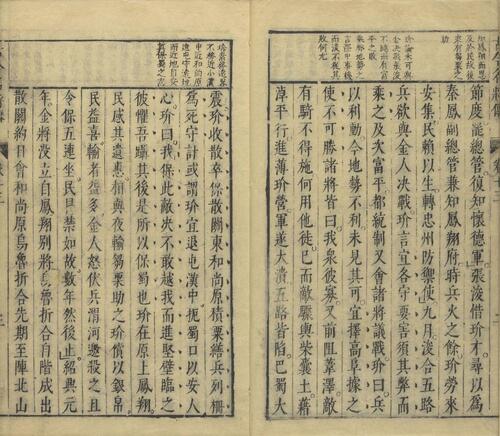 知鳳翔惟思
及於民故後
來有芻粟之
助
玠論未可與
金決戰張浚
不聽而有富
平之敗
玠據地勢之
言深中事機
而浚不悅其
敗何尤
節度浚總管復知懷德軍張浚惜玠才尋以爲
秦鳳副總管兼知鳳翔府時兵火之餘玠勞來
安集民賴以生轉忠州防禦使九月浚合五路
兵欲與金人決戰玠言宜各守要害須其弊而
乘之及次富平都統制又會諸將議戰玠曰兵
以利動今地勢不利未見其可宜擇高阜據之
使不可勝諸將皆曰我眾彼寡又前阻葦澤敵
有騎不得施何用他徙已而敵驟輿柴囊土藉
淖平行進薄玠營軍遂大潰五路皆陷巴蜀大
和尚原
震玠收散卒保散關東和尚原積粟繕兵列柵
爲死守計或謂玠宜退屯漢中扼蜀口以安人
心玠曰我保此敵決不敢越我而進堅壁臨之
彼懼吾躡其後是所以保蜀也玠在原上鳳翔
民感其遺惠相與夜輸芻粟助之玠償以銀帛
民益喜輸者益多金人怒伏兵渭河邀殺之且
令保五連坐民冒禁如故數年然後止紹興元
年金將没立自鳳翔别將烏魯折合自階成出
散關約日會和尚原烏魯折合先期至陣北山